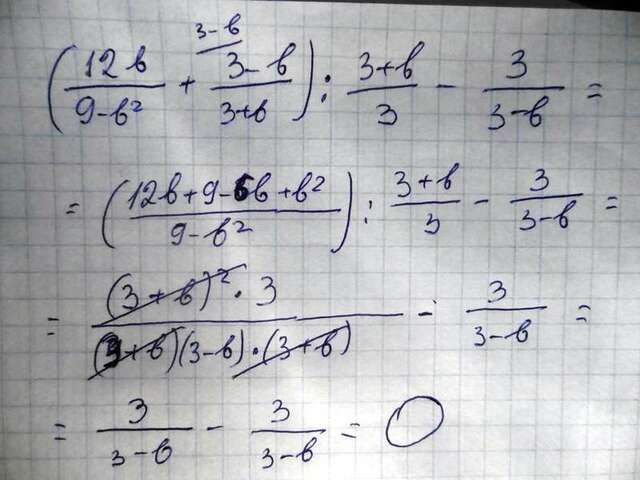 3-в
(12в/(9-в²) + (3-в)/(3+в)) : (3+в)/3 - 3/(3-в) =
= ((12в+9-6в+в²)/(9-в²)) : (3+в)/3 - 3/(3-в) =
= ((3+в)²·3)/((3+в)(3-в)·(3+в)) - 3/(3-в) =
= 3/(3-в) - 3/(3-в) = 0